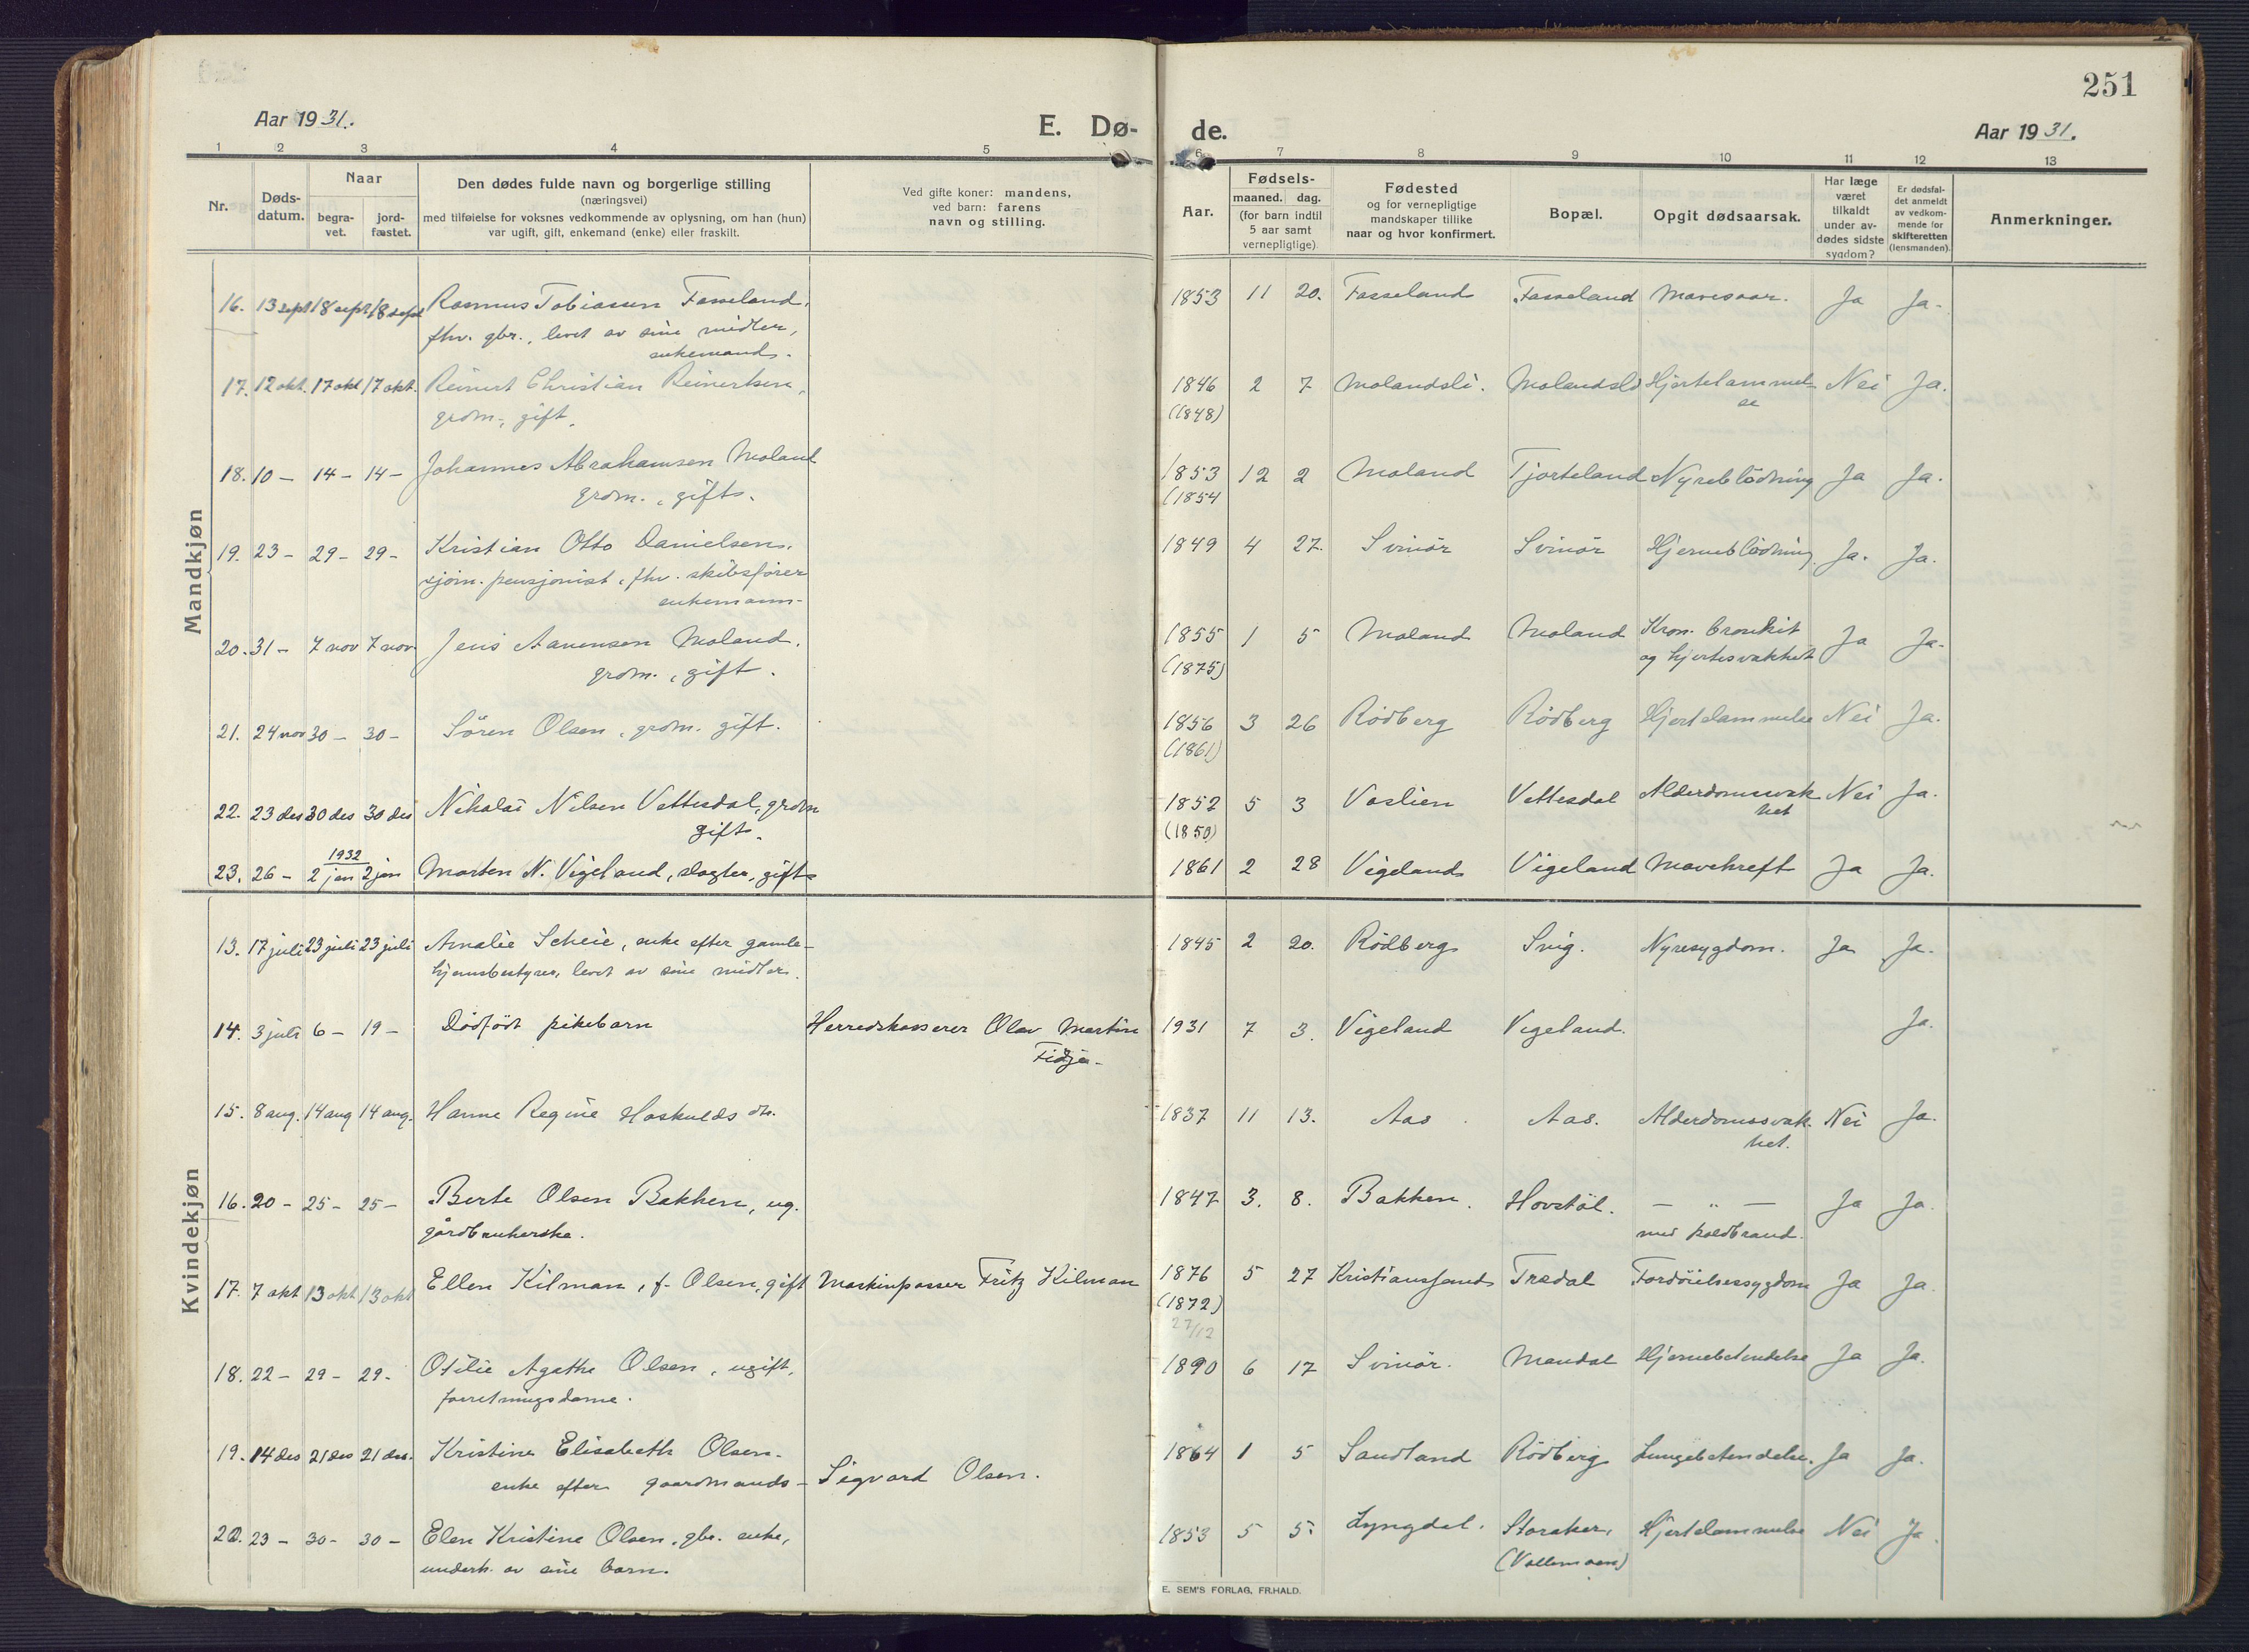 251
Aar 1931.
E. Dø-
de.
Aar 1931.
1 2 3 4 5 6 7 8 9 10 11 12 13
Nr.
Døds-
datum.
Naar
begra-
vet.
jord-
fæstet.
Den dødes fulde navn og borgerlige stilling
(næringsvei)
med tilføielse for voksnes vedkommende av oplysning, om han (hun)
var ugift, gift, enkemand (enke) eller fraskilt.
Ved gifte koner: mandens,
ved barn: farens
navn og stilling.
Aar.
Fødsels-
maaned. dag.
(for barn indtil
5 aar samt
vernepligtige).
Fødested
og for vernepligtige
mandskaper tillike
naar og hvor konfirmert.
Bopæl.
Opgit dødsaarsak.
Har læge
været
tilkaldt
under av-
dødes sidste
sygdom?
Er dødsfal-
det anmeldt
av vedkom-
mende for
skifteretten
(lensmanden).
Anmerkninger.
Mandkjøn
16. 13 sept 18 sept 18 sept Rasmus Tobiassen Fasseland, 1853 11 20. Fasseland Fasseland Mavesaar. Ja Ja.
fhv. gbr., levet av sine midler,
enkemand.
17. 12 okt. 17 okt 17 okt. Reinert Christian Reinertsen, 1846 2 7 Molandsli. Molandsli Hjertelammel- Nei Ja.
grdm., gift. (1848) se
18. 10 - 14 - 14 - Johannes Abrahamsen Moland 1853 12 2 Moland Tjorteland Nyreblödning Ja Ja.
grdm., gift. (1854
19. 23 - 29 - 29 - Kristian Otto Danielsen, 1849 4 27. Svinör Svinör Hjerneblödning Ja. Ja.
sjöm. pensjonist, fhv. skibsfører
enkemann-
20. 31 - 7 nov 7 nov. Jens Aanensen Moland, 1855 1 5 Moland Moland Kron. bronkit Ja Ja.
grdm., gift. (1875) og hjertesvakhet
21. 24 nov 30 - 30 - Sören Olsen, grdm. gift. 1856 3 26 Rödberg Rödberg Hjertelammelse Nei Ja.
(1861)
22. 23 des 30 des 30 des Nikolai Nilsen Vettesdal, grdm 1852 5 3 Voslien Vettesdal Alderdomssvak Nei Ja.
gift. (1850) het
1932
23. 26 - 2 jan 2 jan Morten N. Vigeland, slagter, gift 1861 2 28 Vigeland Vigeland Mavekreft Ja Ja.
Kvindekjøn
13. 17 juli 23 juli 23 juli Amalie Scheie, enke efter gamle- 1845 2 20. Rödberg Svig. Nyresygdom. Ja Ja.
hjemsbestyrer, levet av sine midler.
14. 3 juli 6 - 19 - Dödfödt pikebarn Herredskasserer Olav Martin 1931 7 3. Vigeland Vigeland. Ja.
Fidje-
15. 8 aug. 14 aug 14 aug. Hanne Regine Hoskulds dtr. 1837 11 13. Aas Aas. Alderdomssvak. Nei Ja.
het.
16. 20 - 25 - 25 - Berte Olsen Bakken, ug. 1847 3. 8. Bakken. Hovstöl. - " - Ja Ja.
gårdbrukerske. med koldbrand.
17. 7 okt 13 okt 13 okt Ellen Kilman, f. Olsen, gift Maskinpasser Fritz Kilman 1876 5 27 Kristianssand Tredal Fordöielsessygdom Ja Ja.
(1872)
27/12
18. 22 - 29 - 29 - Otilie Agathe Olsen, ugift, 1890 6 17 Svinör. Mandal Hjernebetendelse Ja Ja.
forretningsdame.
19. 14 des 21 des 21 des. Kristine Elisabeth Olsen. 1864 1 5 Sandland Rödberg Lungebetendelse. Ja Ja.
enke efter gaardmand- Sigvard Olsen.
20. 23 - 30 - 30 - Elen Kristine Olsen, gbr. enke, 1853 5 5. Lyngdal. Storaker, Hjertelammelse Nei Ja.
underh. av sine barn. (Vallemoen)
E. SEM'S FORLAG, FR.HALD.